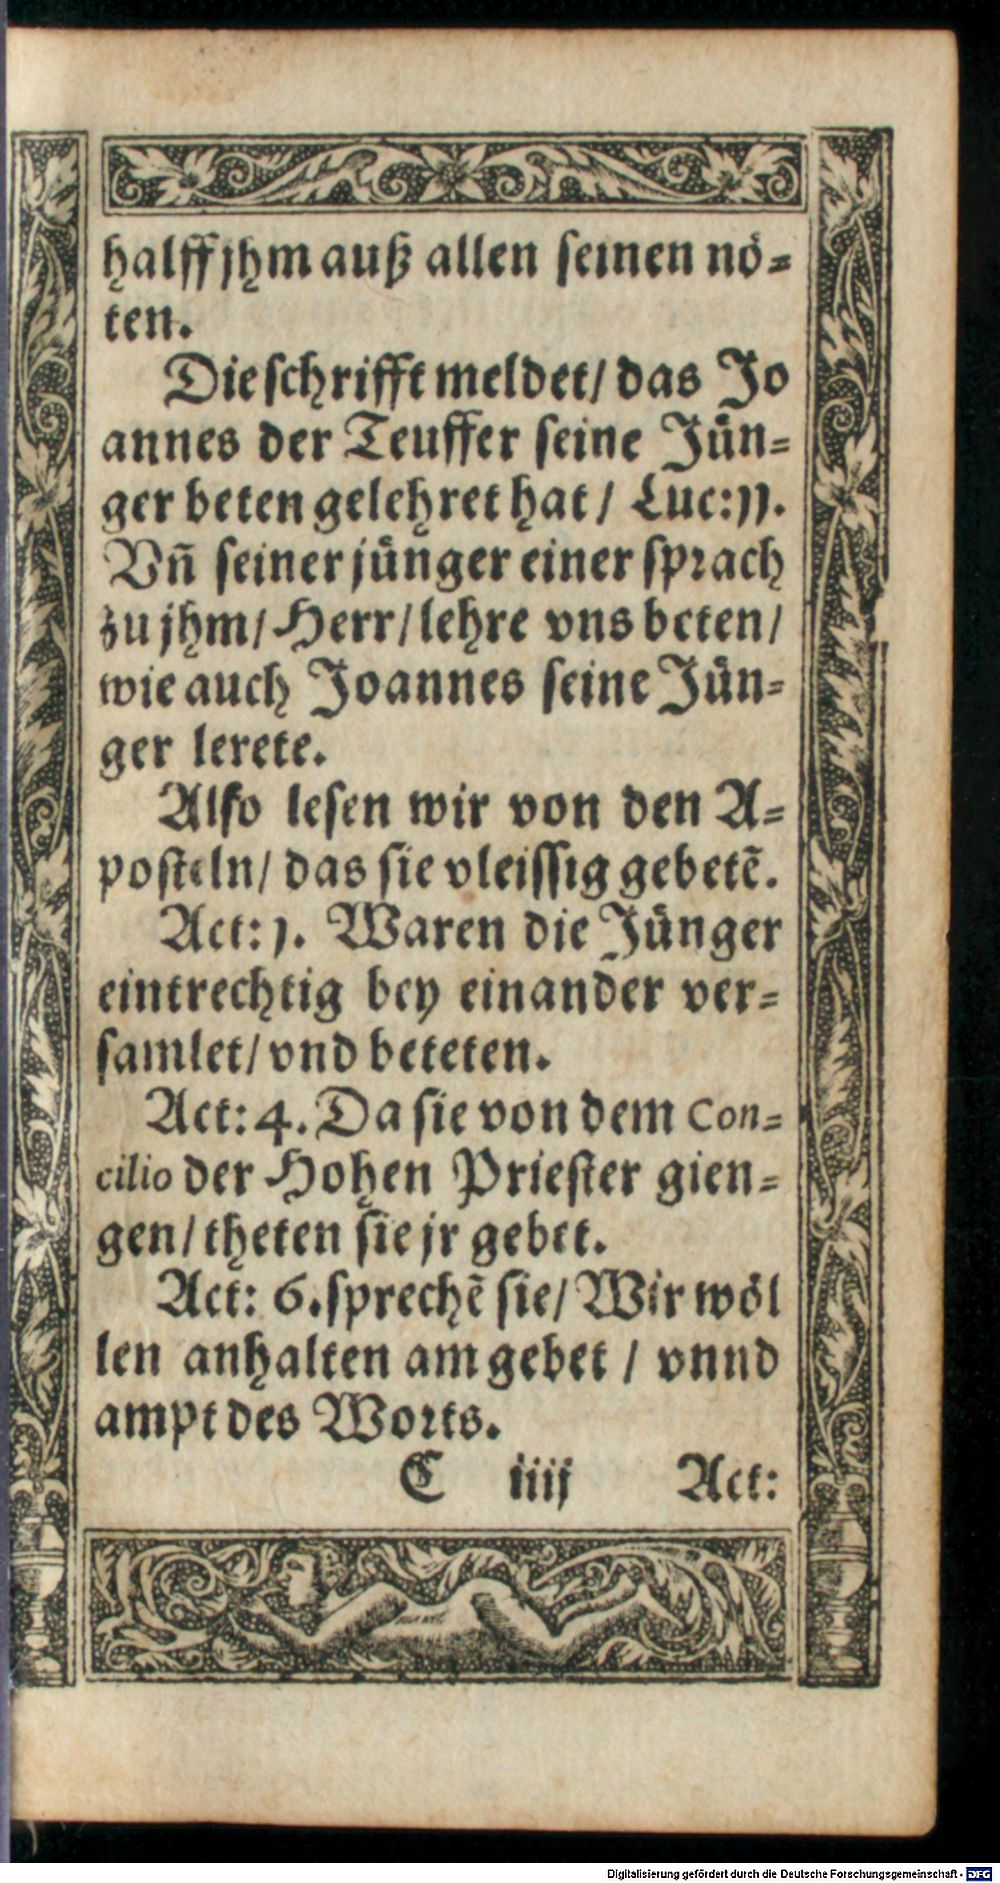 halff jhm auß allen seinen nö-
ten.
Die schrifft meldet/ das Jo
annes der Teuffer seine Jün-
ger beten gelehret hat / Luc: 11.
Vñ seiner jünger einer sprach
zu jhm/ Herr/ lehre vns beten/
wie auch Joannes seine Jün-
ger lerete.
Also lesen wir von den A-
posteln/ das sie vleissig gebetẽ.
Act: 1. Waren die Jünger
eintrechtig bey einander ver-
samlet/ vnd beteten.
Act: 4. Da sie von dem Con-
cilio der Hohen Priester gien-
gen/ theten sie jr gebet.
Act: 6. sprechẽ sie/ Wir wöl
len anhalten am gebet / vnnd
ampt des Worts.
C iiij Act:
Digitalisierung gefördert durch die Deutsche Forschungsgemeinschaft - DFG